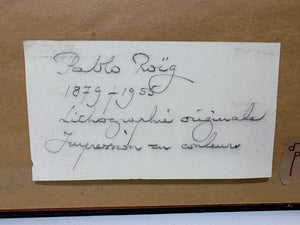 Pablo Roïg
1879-1955
Lithographie originale
Impression en couleurs